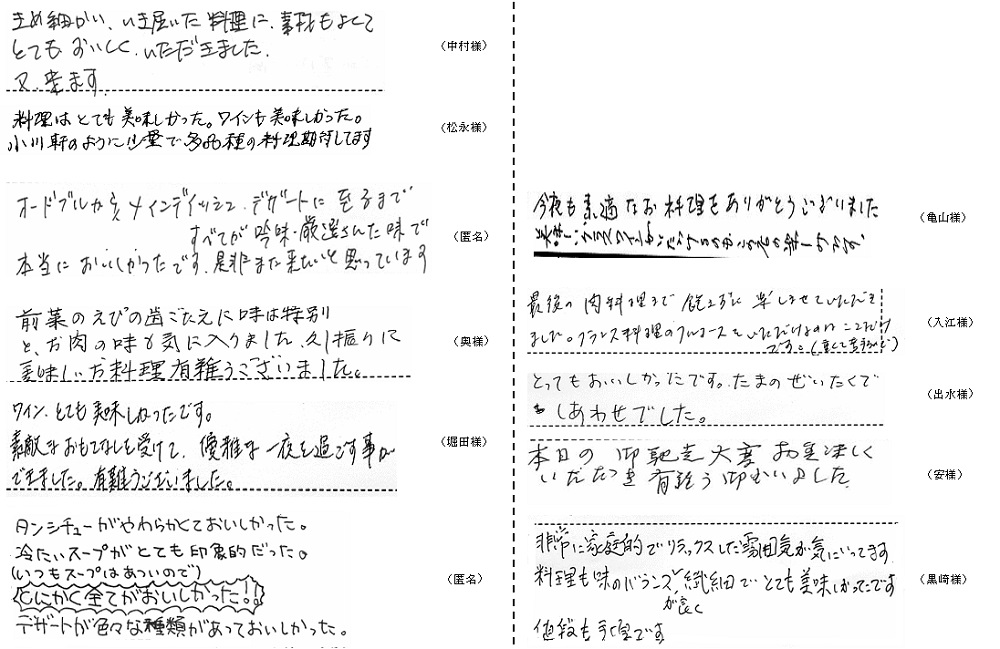 きめ細かい、いき届いた料理に、素材もよくて
とてもおいしく、いただきました。
又、来ます。
（中村様）
料理はとても美味しかった。ワインも美味しかった。
小川軒のように少量で多品種の料理期待してます
（松永様）
オードブルから、メインディッシュ、デザートに至るまで
すべてが吟味・厳選された味で
本当においしかったです。是非また来たいと思っています
（匿名）
前菜のえびの歯ごたえに味は特別
と、お肉の味も気に入りました、久し振りに
美味しいお料理有難うございました。
（奥様）
ワイン、とても美味しかったです。
素敵なおもてなしを受けて、優雅な一夜を過ごす事が
できました。有難うございました。
（堀田様）
タンシチューがやわらかくておいしかった。
冷たいスープがとても印象的だった。
（いつもスープはあついので）
とにかく全てがおいしかった!!
デザートが色々な種類があっておいしかった。
（匿名）
今夜も素適なお料理をありがとうございました
（亀山様）
最後の肉料理まで飽きずに楽しませていただき
ました。フランス料理のフルコースをいただけるのはここだけ
です。（重くて苦手なので）
（入江様）
とってもおいしかったです。たまのぜいたくで
しあわせでした。
（出水様）
本日の御馳走大変お美味しく
いただき有難う御座いました
（安様）
非常に家庭的でリラックスした雰囲気が気にいってます
料理も味のバランス、繊細でとても美味しかったです
が良く
値段も手頃です
（黒崎様）